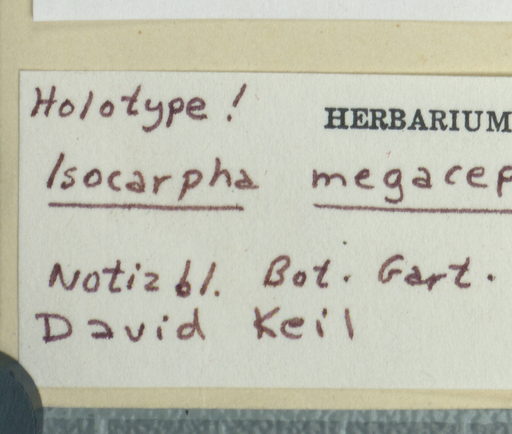 Holotype!
HERBARIUM
Isocarpha megacep
Notizbl. Bot. Gart.
David Keil